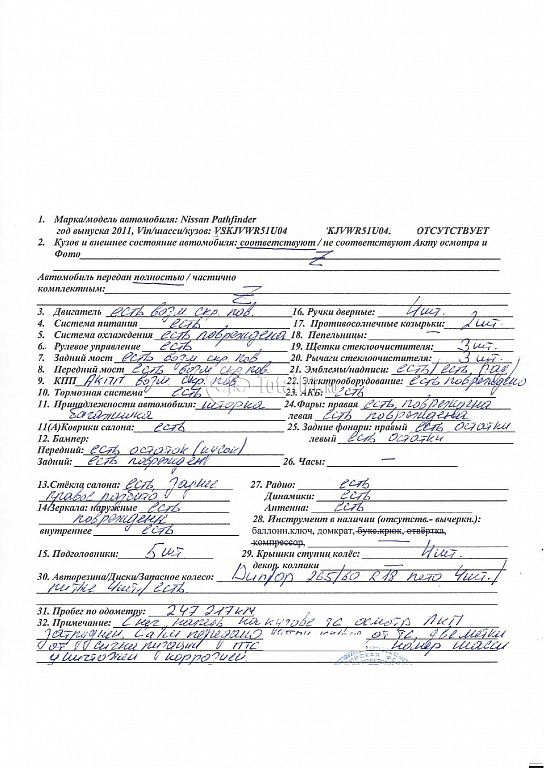 1. Марка/модель автомобиля: Nissan Pathfinder
год выпуска 2011, Vin/шасси/кузов: VSKJVWR51U04 'KJVWR51U04. ОТСУТСТВУЕТ
2. Кузов и внешнее состояние автомобиля: соответствуют / не соответствуют Акту осмотра и
Фото Z
Автомобиль передан полностью / частично
комплектным: Z
3. Двигатель есть возм скр. пов. 16. Ручки дверные: 4шт.
4. Система питания есть 17. Противосолнечные козырьки: 2шт.
5. Система охлаждения есть повреждена 18. Пепельницы:
6. Рулевое управление есть 19. Щетки стеклоочистителя: 3шт.
7. Задний мост есть возм скр. пов 20. Рычаги стеклоочистителя: 3 шт.
8. Передний мост есть возм скр. пов 21. Эмблемы/надписи: есть/есть,
9. КПП АКПП возм скр. пов. 22. Электрооборудование: есть повреждено
10. Тормозная система есть 23. АКБ: есть
11. Принадлежности автомобиля: шторка 24.Фары: правая есть повреждена
багажника левая есть повреждена
11(А)Коврики салона: есть 25. Задние фонари: правый есть остатки
12. Бампер: левый есть остатки
Передний: есть остаток (кусок)
Задний: есть поврежден 26. Часы: —
13.Стёкла салона: есть, заднее 27. Радио: есть
правое разбито Динамики: есть
14/Зеркала: наружные есть Антенна: есть
повреждены 28. Инструмент в наличии (отсутств.- вычеркн.):
внутреннее есть баллонн.ключ, домкрат, букс.крюк, отвёртка,
компрессор,
15. Подголовники: 5шт 29. Крышки ступиц колёс: 4шт.
декор. колпаки
30. Авторезина/Диски/Запасное колесо: Dunlop 265/60 R18 лето 4шт./
литые 4шт/ есть.
31. Пробег по одометру: 247 217км
32. Примечание: Снег, наледь на кузове тс осмотр ЛКП
затруднен. С а/м передано от тс, две метки
от сигнализации ПТС номер шасси
уничтожен коррозией.